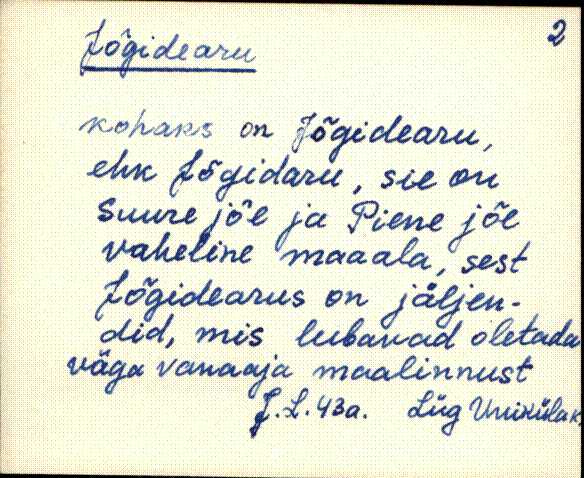 2
Jõgidearu
kohaks on Jõgidearu,
ehk Jõgidaru, sie on
Suure jõe ja Piene jõe
vaheline maaala, sest
Jõgidearus on jäljen-
did, mis lubavad oletada
väga vanaaja maalinnust
J.L.43a. Lüg Unikülak.